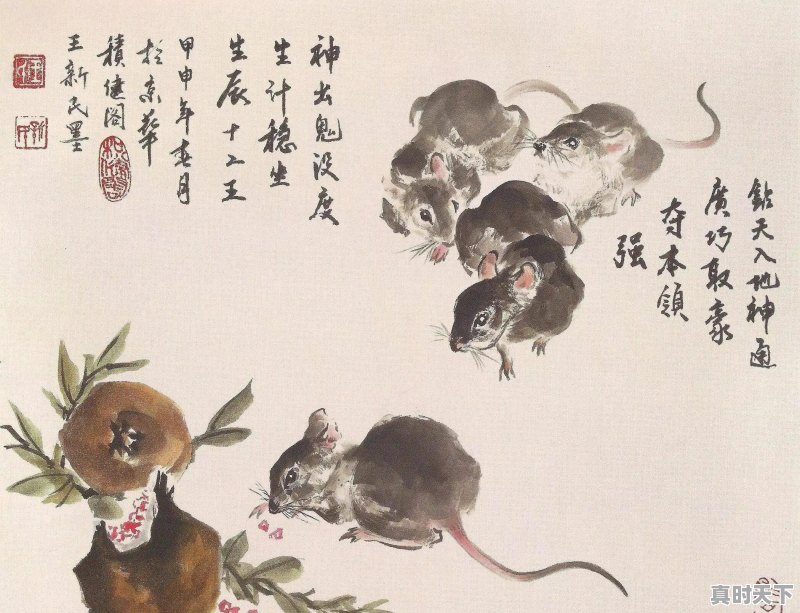 鉆天入地神通
廣巧取豪
夺本領
强
神出鬼没度
生计稳坐
生辰十二王
甲申年春月
於京華
積健阁
王新民墨
真时天下